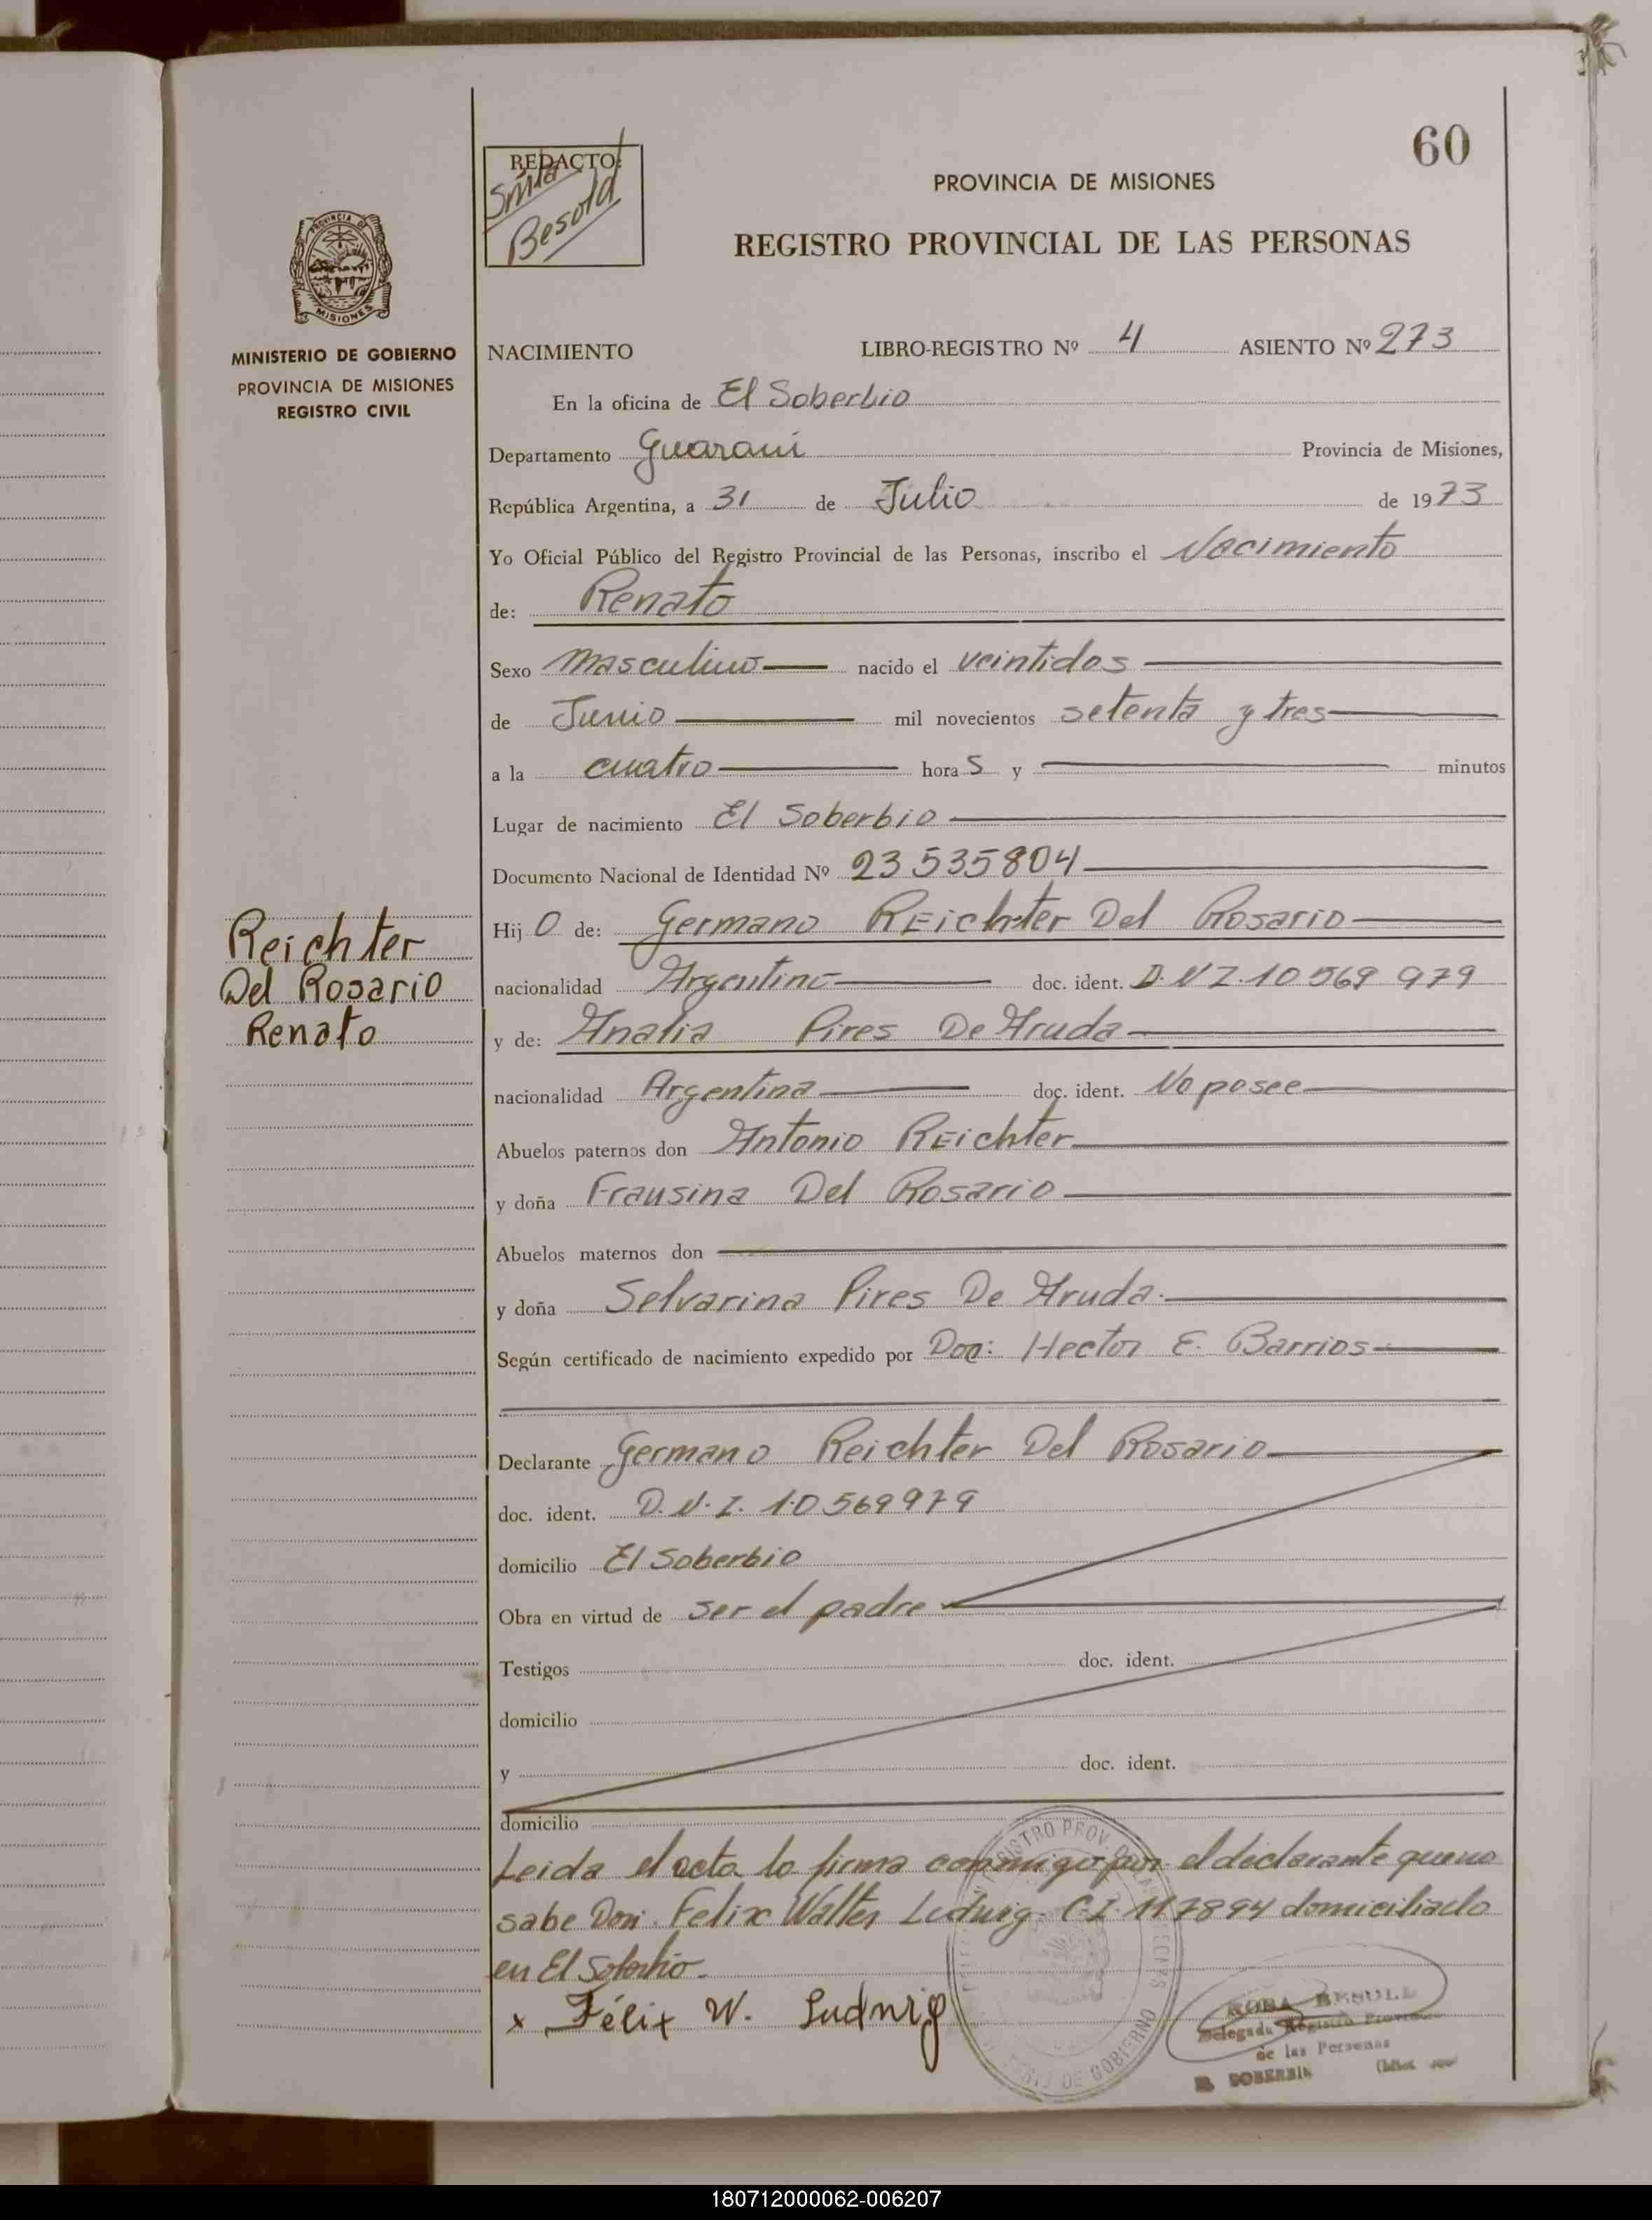 60
REDACTO:
Smta
Besold
PROVINCIA DE MISIONES
REGISTRO PROVINCIAL DE LAS PERSONAS
PROVINCIA DE
MISIONES
MINISTERIO DE GOBIERNO
PROVINCIA DE MISIONES
REGISTRO CIVIL
NACIMIENTO LIBRO-REGISTRO Nº 4 ASIENTO Nº 273
En la oficina de El Soberbio
Departamento Guarani Provincia de Misiones,
República Argentina, a 31 de Julio de 1973
Yo Oficial Público del Registro Provincial de las Personas, inscribo el Nacimiento
de: Renato
Sexo masculino nacido el veintidos
de Junio mil novecientos setenta y tres
a la cuatro hora s y minutos
Lugar de nacimiento El Soberbio
Documento Nacional de Identidad Nº 23 535 804
Hij o de: Germano REichter Del Rosario
nacionalidad Argentino doc. ident. D.N I. 10 569 979
y de: Analia Pires De Aruda
nacionalidad Argentina doc. ident. No posee
Abuelos paternos don Antonio REichter
y doña Frausina Del Rosario
Abuelos maternos don
y doña Selvarina Pires De Aruda.
Según certificado de nacimiento expedido por Don: Hector E. Barrios
Declarante Germano Reichter Del Rosario
doc. ident. D.N.I. 10 569979
domicilio El Soberbio
Obra en virtud de ser el padre
Testigos doc. ident.
domicilio
y doc. ident.
domicilio
Leida el acta la firma conmigo por el declarante que no
sabe Don. Felix Walter Ludwig. C.I. 117894 domiciliado
en El Soberbio.
x Félix W. Ludwig
Reichter
Del Rosario
Renato
DE GOBIERNO
Delegada Registro Provincial
de las Personas
EL SOBERBIO
180712000062-006207